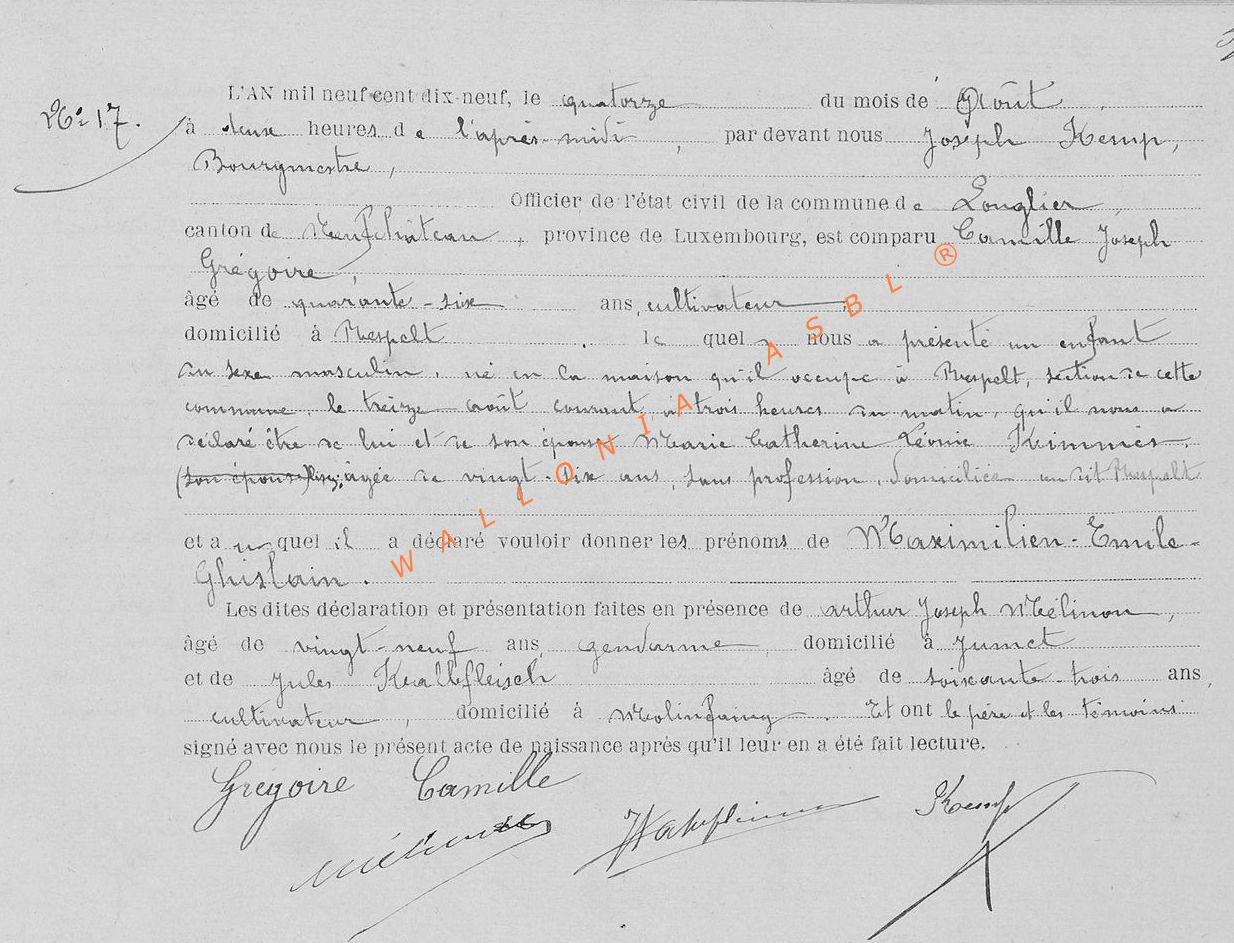 No 17.
L'AN mil neuf cent dix-neuf, le quatorze du mois de Août
à deux heures de l'après-midi, par devant nous Joseph Kemp,
Bourgmestre,
Officier de l'état civil de la commune de Longlier,
canton de Neufchâteau, province de Luxembourg, est comparu Camille Joseph
Grégoire,
âgé de quarante-six ans, cultivateur
domicilié à Respelt. lequel nous a présenté un enfant
du sexe masculin, né en la maison qu'il occupe à Respelt, section de cette
commune, le treize août courant, à trois heures du matin, qu'il nous a
déclaré être de lui et de son épouse Marie Catherine Léonie Kimmès.
(son épouse) âgée de vingt-six ans, sans profession, domiciliée au dit Respelt
et auquel il a déclaré vouloir donner les prénoms de Maximilien-Emile-
Ghislain.
Les dites déclaration et présentation faites en présence de Arthur Joseph Mélinon,
âgé de vingt-neuf ans, gendarme, domicilié à Jumet
et de Jules Kalbfleisch âgé de soixante-trois ans,
cultivateur, domicilié à Molinfaing. Et ont le père et les témoins
signé avec nous le présent acte de naissance après qu'il leur en a été fait lecture.
Grégoire Camille
Kemp
WALLONIA ASBL ®